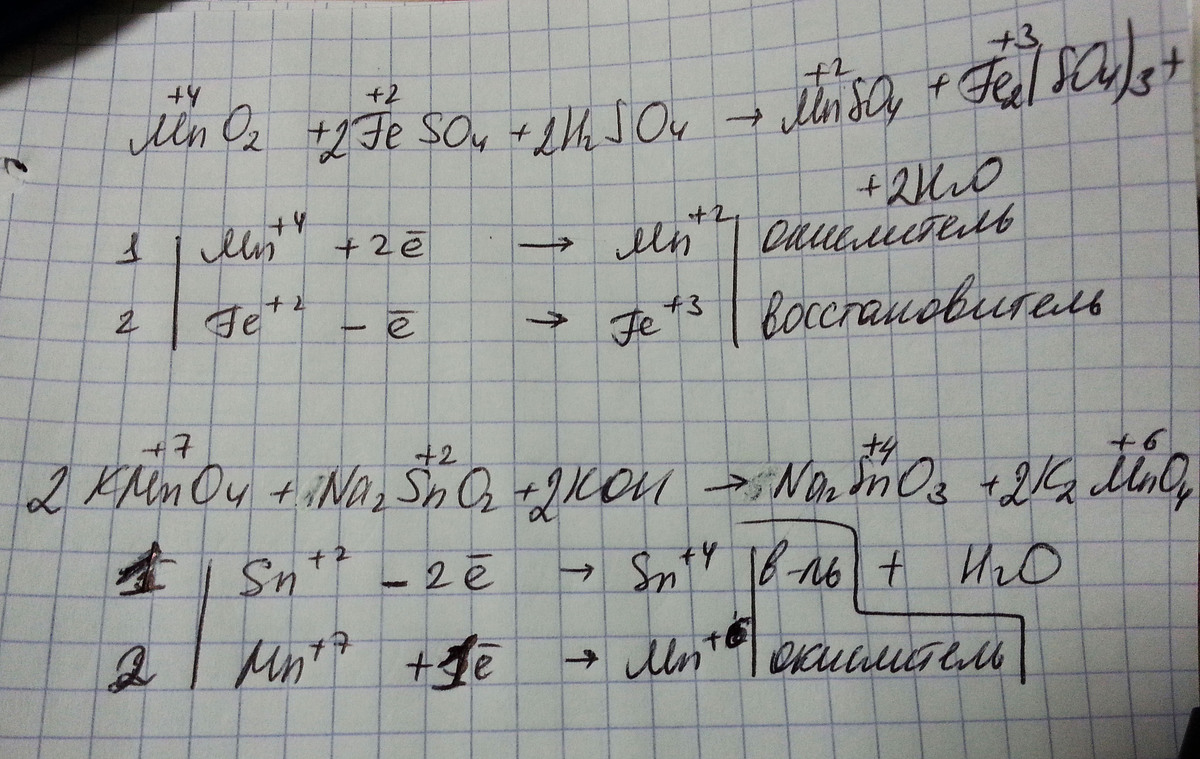 +4 +2 +2 +3
MnO2 + 2FeSO4 + 2H2SO4 → MnSO4 + Fe2(SO4)3 +
+ 2H2O
1 | Mn+4 + 2ē → Mn+2 | окислитель
2 | Fe+2 - ē → Fe+3 | восстановитель
+7 +2 +4 +6
2KMnO4 + Na2SnO2 + 2KOH → Na2SnO3 + 2K2MnO4
1 | Sn+2 - 2ē → Sn+4 | в-ль + H2O
2 | Mn+7 + 1ē → Mn+6 | окислитель